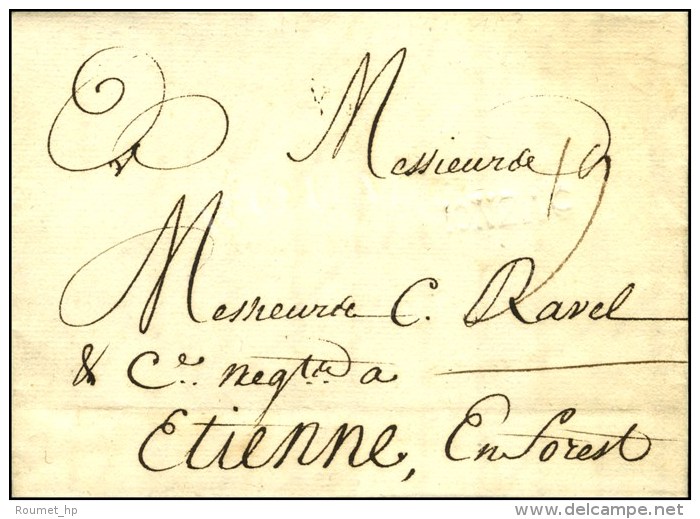 Messieurs
Messieurs C. Ravel
& Ce. negts. a
Etienne, En forest
Roumet_hp
delcampe.net